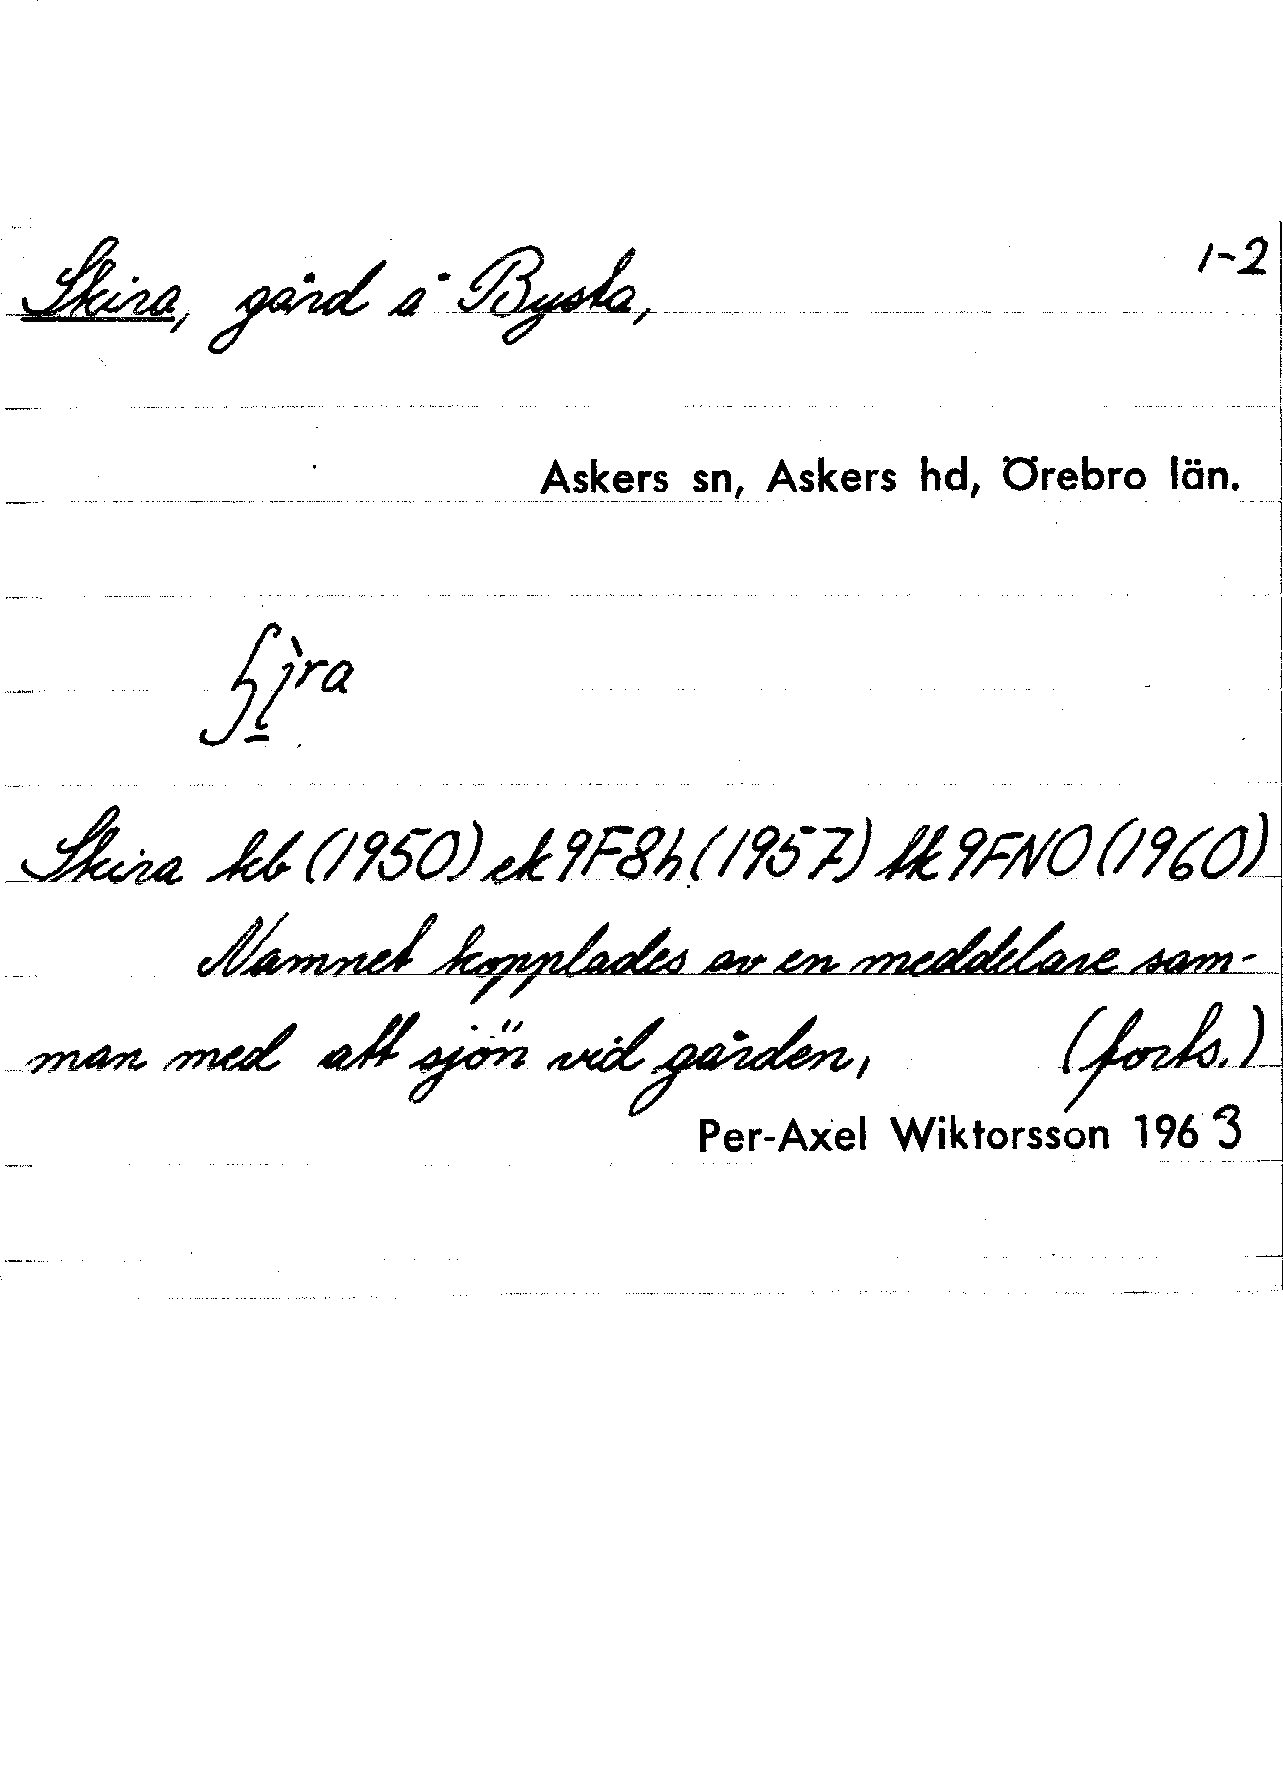 Skira, gård å Bysta,
1-2
Askers sn, Askers hd, Örebro län.
Skira kb (1950) ek 9F8h (1957) tk 9FNO (1960)
Namnet kopplades av en meddelare sam-
man med att sjön vid gården, (forts.)
Per-Axel Wiktorsson 1963